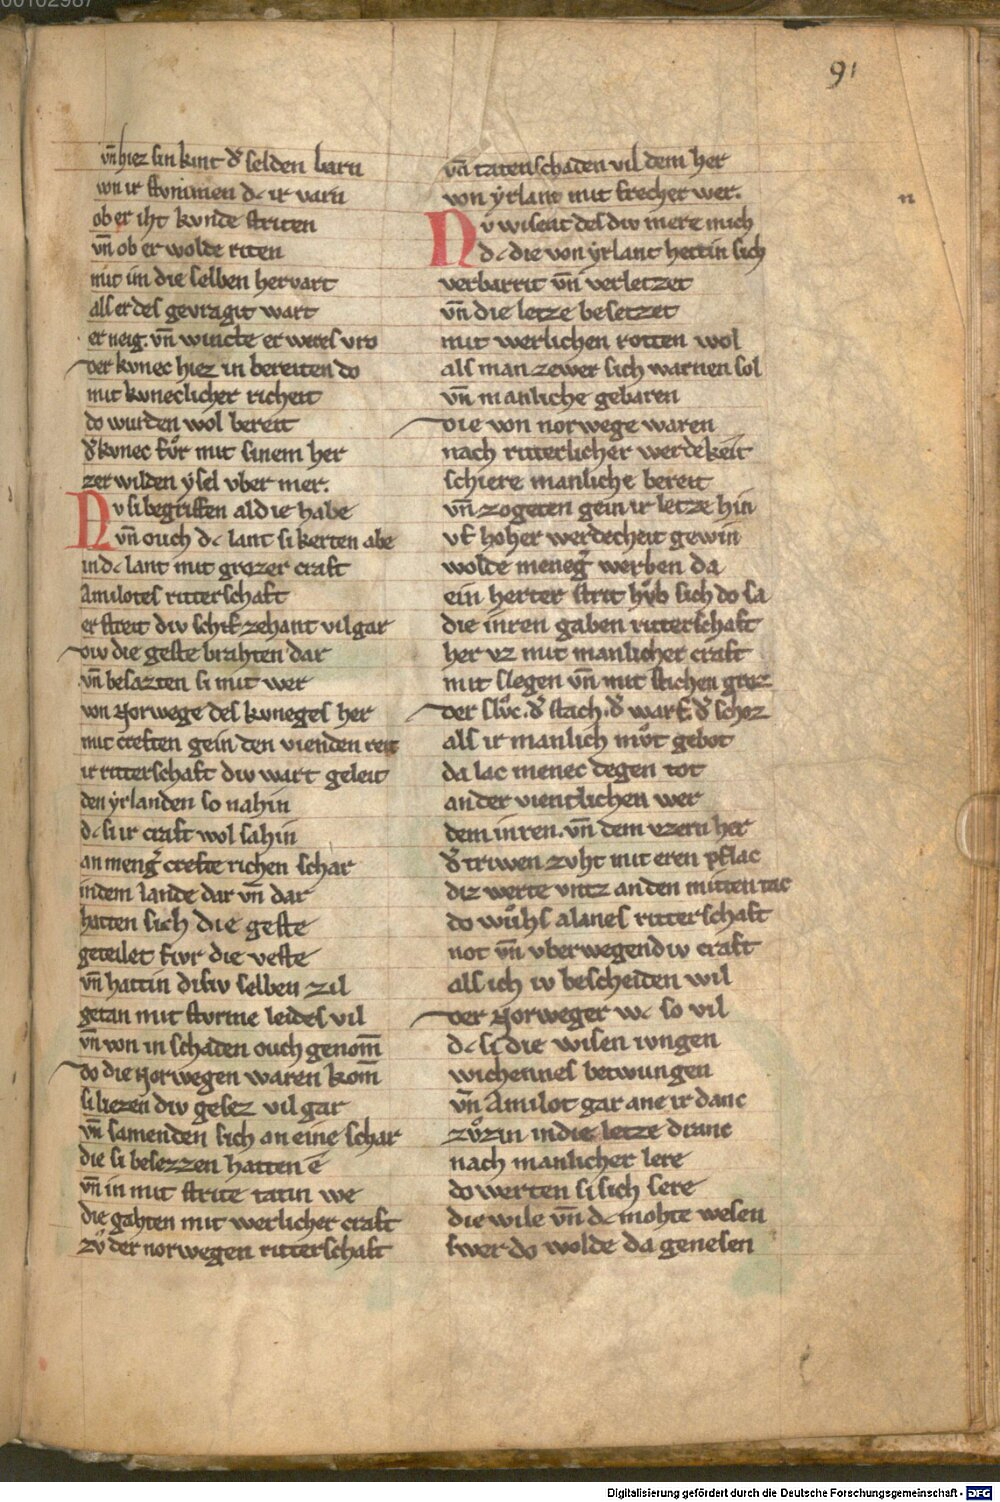 00102987
91
vn̄ hiez sin kint d' selden barn
von ir stvnimen dc ir varn
ob er iht kvnde striten
vn̄ ob er wolde riten
mit im die selben hervart
alsserdes gevragit wart
er neig. vn̄ wincte er weres vro
der kvnec hiez in bereiten do
mit kvneclicher richeit
do wurden wol bereit
d' kvnec fvͦr mit sinem her
zer wilden ysel vber mer.
Nv si begriffen al die habe
vn̄ ouch dc lant si kerten abe
in dc lant mit grozer craft
Amilotes ritterschaft
er streit div schif zehant vil gar
div die geste brahten dar
vn̄ besazten si mit wer
von Norwege des kvneges her
mit creften gein den vienden reit
ir ritterschaft div wart geleit
den ẏrlanden so nahin
dc si ir craft wol sahin
an meng' crefte richen schar
in dem lande dar vn̄ dar
hatten sich die geste
geteilet fvr die veste
vn̄ hattin disiv selben zil
getan mit stvrme leides vil
vn̄ von in schaden ouch genom̄
do die Norwegen waren kom̄
si liezen div gesez vil gar
vn̄ samenden sich an eine schar
die si besezzen hatten e
vn̄ in mit strite tatin we
die gahten mit werlicher craft
zvͦ der norwegen ritterschaft
vn̄ taten schaden vil dem her
von ẏrlant mit frecher wer.
n
Nv wisent des div mere mich
dc die von ẏrlant hettin sich
verbarrit vn̄ verletzet
vn̄ die letze besetzet
mit werlichen rotten wol
als man zewer sich warnen sol
vn̄ manliche gebaren
die von norwege waren
nach ritterlicher werdekeit
schiere manliche bereit
vn̄ zogeten gein ir letze hin
vf hoher werdecheit gewin
wolde meneg' werben da
ein herter strit hvͦb sich do sa
die inren gaben ritterschaft
her vz mit manlicher craft
mit slegen vn̄ mit stichen groz
der slvͦc. d' stach. d' warf. d' schoz
als ir manlich mvͦt gebot
da lac menec degen tot
an der vientlichen wer
dem inren. vn̄ dem vzern her
d' triwen zvht mit eren pflac
diz werte vntz an den mitten tac
do wͦhs alanes ritterschaft
not vn̄ vberwegendiv craft
als ich iv bescheiden wil
der Norweger wc so vil
dc si die wisen ivngen
wichennes betwungen
vn̄ Amilot gar ane ir danc
zvͦzin in die letze dranc
nach manlicher lere
do werten si sich sere
die wile vn̄ dc mohte wesen
swer do wolde da genesen
Digitalisierung gefördert durch die Deutsche Forschungsgemeinschaft - DFG